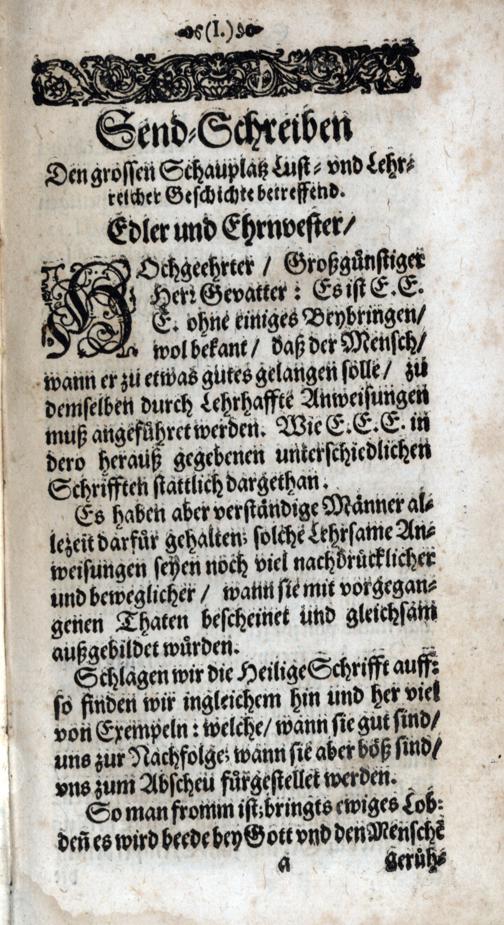 (I.)
Send-Schreiben
Den grossen Schauplatz Lust- vnd Lehr-
reicher Geschichte betreffend.
Edler und Ehrnvester/
HOchgeehrter / Großgünstiger
Herr Gevatter: Es ist E. E.
E. ohne einiges Beybringen/
wol bekant / daß der Mensch/
wann er zu etwas gutes gelangen solle/ zu
demselben durch Lehrhaffte Anweisungen
muß angeführet werden. Wie E. E. E. in
dero herauß gegebenen unterschiedlichen
Schrifften stattlich dargethan.
Es haben aber verständige Männer al-
lezeit darfür gehalten; solche Lehrsame An-
weisungen seyen noch viel nachdrücklicher
und beweglicher / wann sie mit vorgegan-
genen Thaten bescheinet und gleichsam
außgebildet würden.
Schlagen wir die Heilige Schrifft auff:
so finden wir ingleichem hin und her viel
von Exempeln: welche/ wann sie gut sind/
uns zur Nachfolge; wann sie aber böß sind/
vns zum Abscheu fürgestellet werden.
So man fromm ist; bringts ewiges Lob:
deñ es wird beede bey Gott vnd den Menschē
a gerüh-